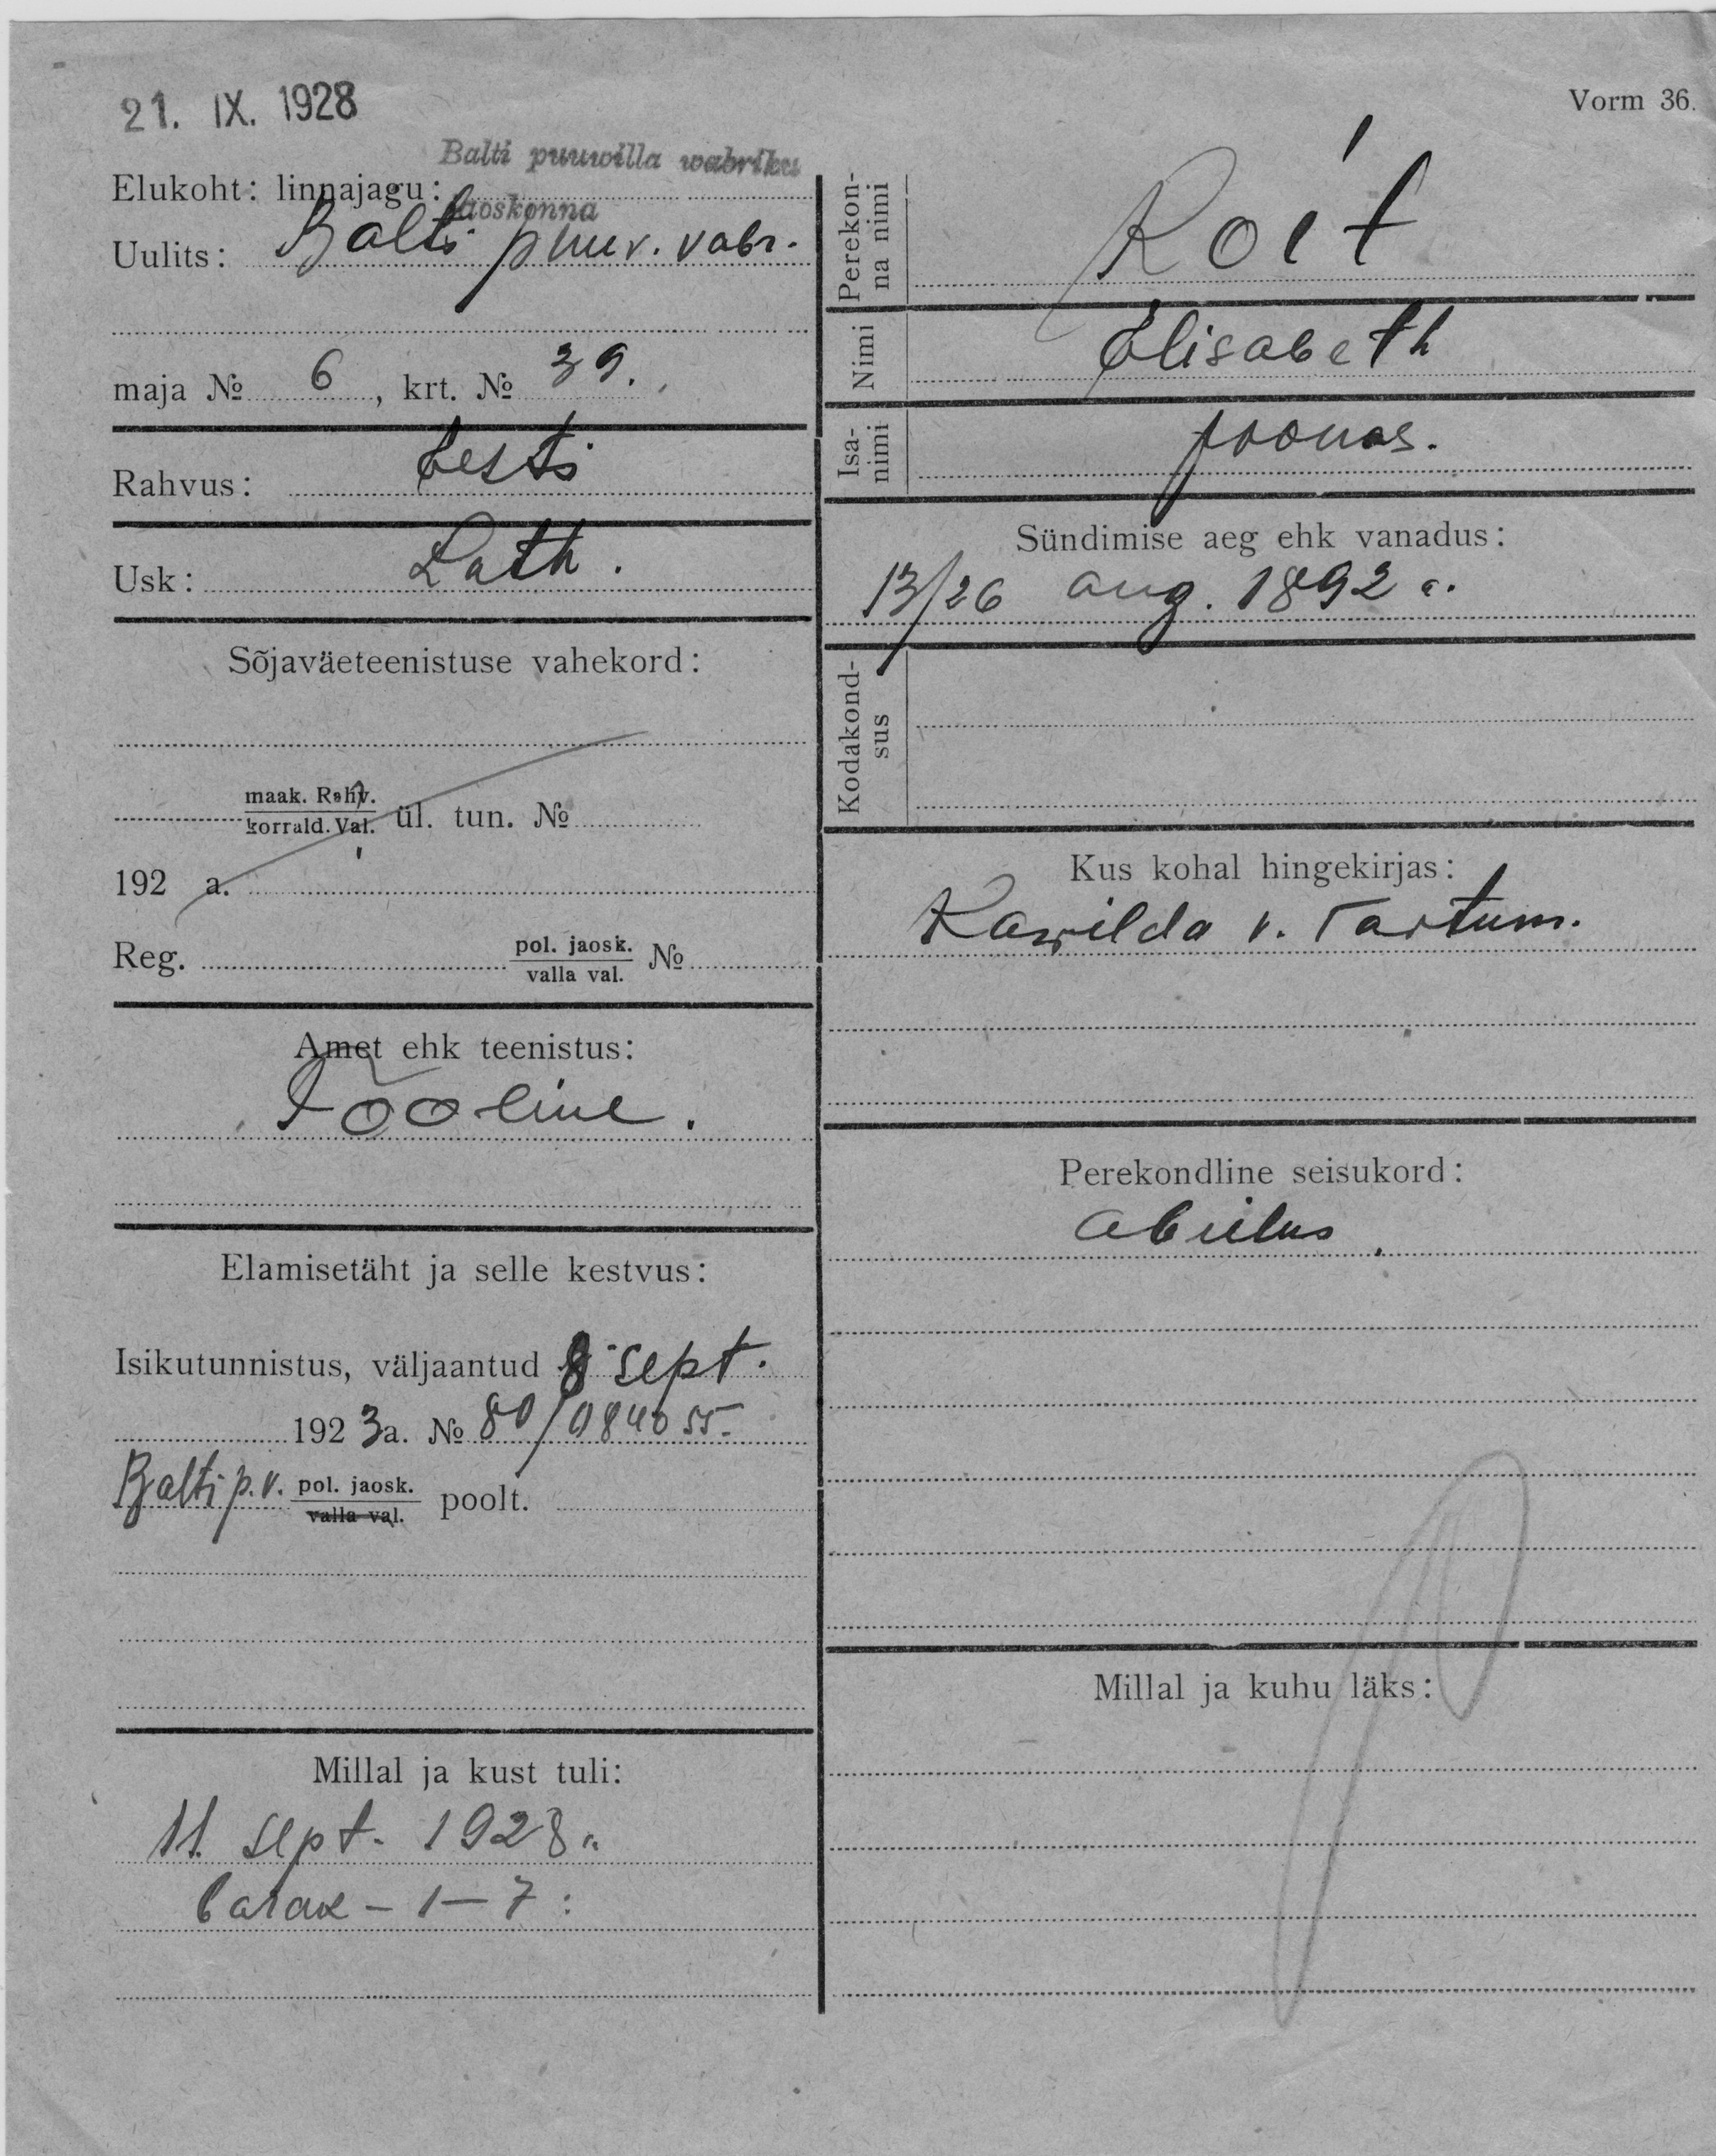 21. IX. 1928
Vorm 36.
Balti puuwilla wabriku
Elukoht: linnajagu:
jaoskonna
Uulits: Balti puuv. vabr.
maja № 6, krt. № 39.
Rahvus: Eesti
Usk: Luth.
Sõjaväeteenistuse vahekord:
maak. Rahv.
korrald. Val. ül. tun. №
192 a.
Reg. pol. jaosk. №
valla val.
Amet ehk teenistus:
Tööline.
Elamisetäht ja selle kestvus:
Isikutunnistus, väljaantud 8 sept.
1923a. № 80/084055.
Balti p.v. pol. jaosk. poolt.
valla val.
Millal ja kust tuli:
11. sept. 1928 a.
barak - 1 - 7:
Perekon-
na nimi
Roit
Nimi
Elisabeth
Isa-
nimi
Joonas.
Sündimise aeg ehk vanadus:
13/26 aug. 1892 a.
Kodakond-
sus
Kus kohal hingekirjas:
Kawilda v. Tartum.
Perekondline seisukord:
abielus
Millal ja kuhu läks: